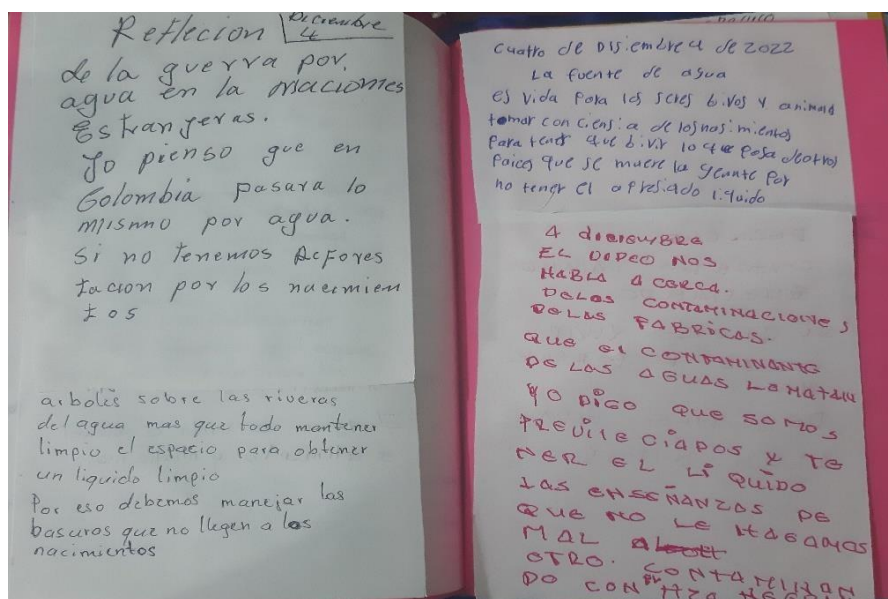 Reflecion
Diciembre
4
de la guerra por.
agua en la naciones
Estranjeras.
Yo pienso que en
Colombia pasara lo
mismo por agua.
Si no tenemos Acfores
tacion por los nacimien
tos
arboles sobre las riveras
del agua mas que todo mantener
limpio el espacio para obtener
un liquido limpio
Por eso debemos manejar las
basuras que no llegen a los
nacimientos
cuatro de Disiembre 4 de 2022
La fuente de agua
es vida para los seres bivos y animal
tomar conciensia de los nasimientos
Para tener que bivir lo que pasa deotros
Paices que se muere la geante por
no tener el apresiado liquido
4 diciembre
EL DIDEO NOS
HABLA A CERCA.
DELAS CONTAMINACIONES
DELAS FABRICAS.
QUE el CONTAMINANTE
DE LAS AGUAS LO MATAN
YO DIGO QUE SOMOS
PREVILE CIADOS Y TE
NER EL LI QUIDO
LAS ENSEÑANZAS DE
QUE NO LE HAGAMOS
MAL
OTRO. CONTAMINAN
DO CON